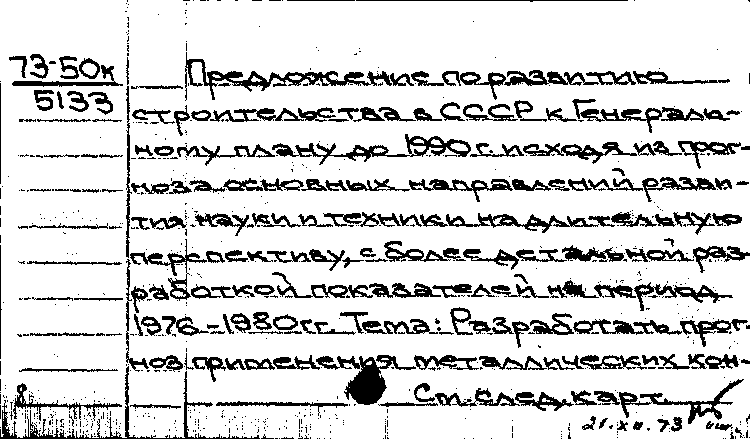 73-50к
5133
Предложение по развитию
строительства в СССР к Генераль-
ному плану до 1990 г. исходя из прог-
ноза основных направлений разви-
тия науки и техники на длительную
перспективу, с более детальной раз-
работкой показателей на период
1976-1980 гг. Тема: Разработать прог-
ноз применения металлических кон-
8
См. след. карт.
21.XII.73